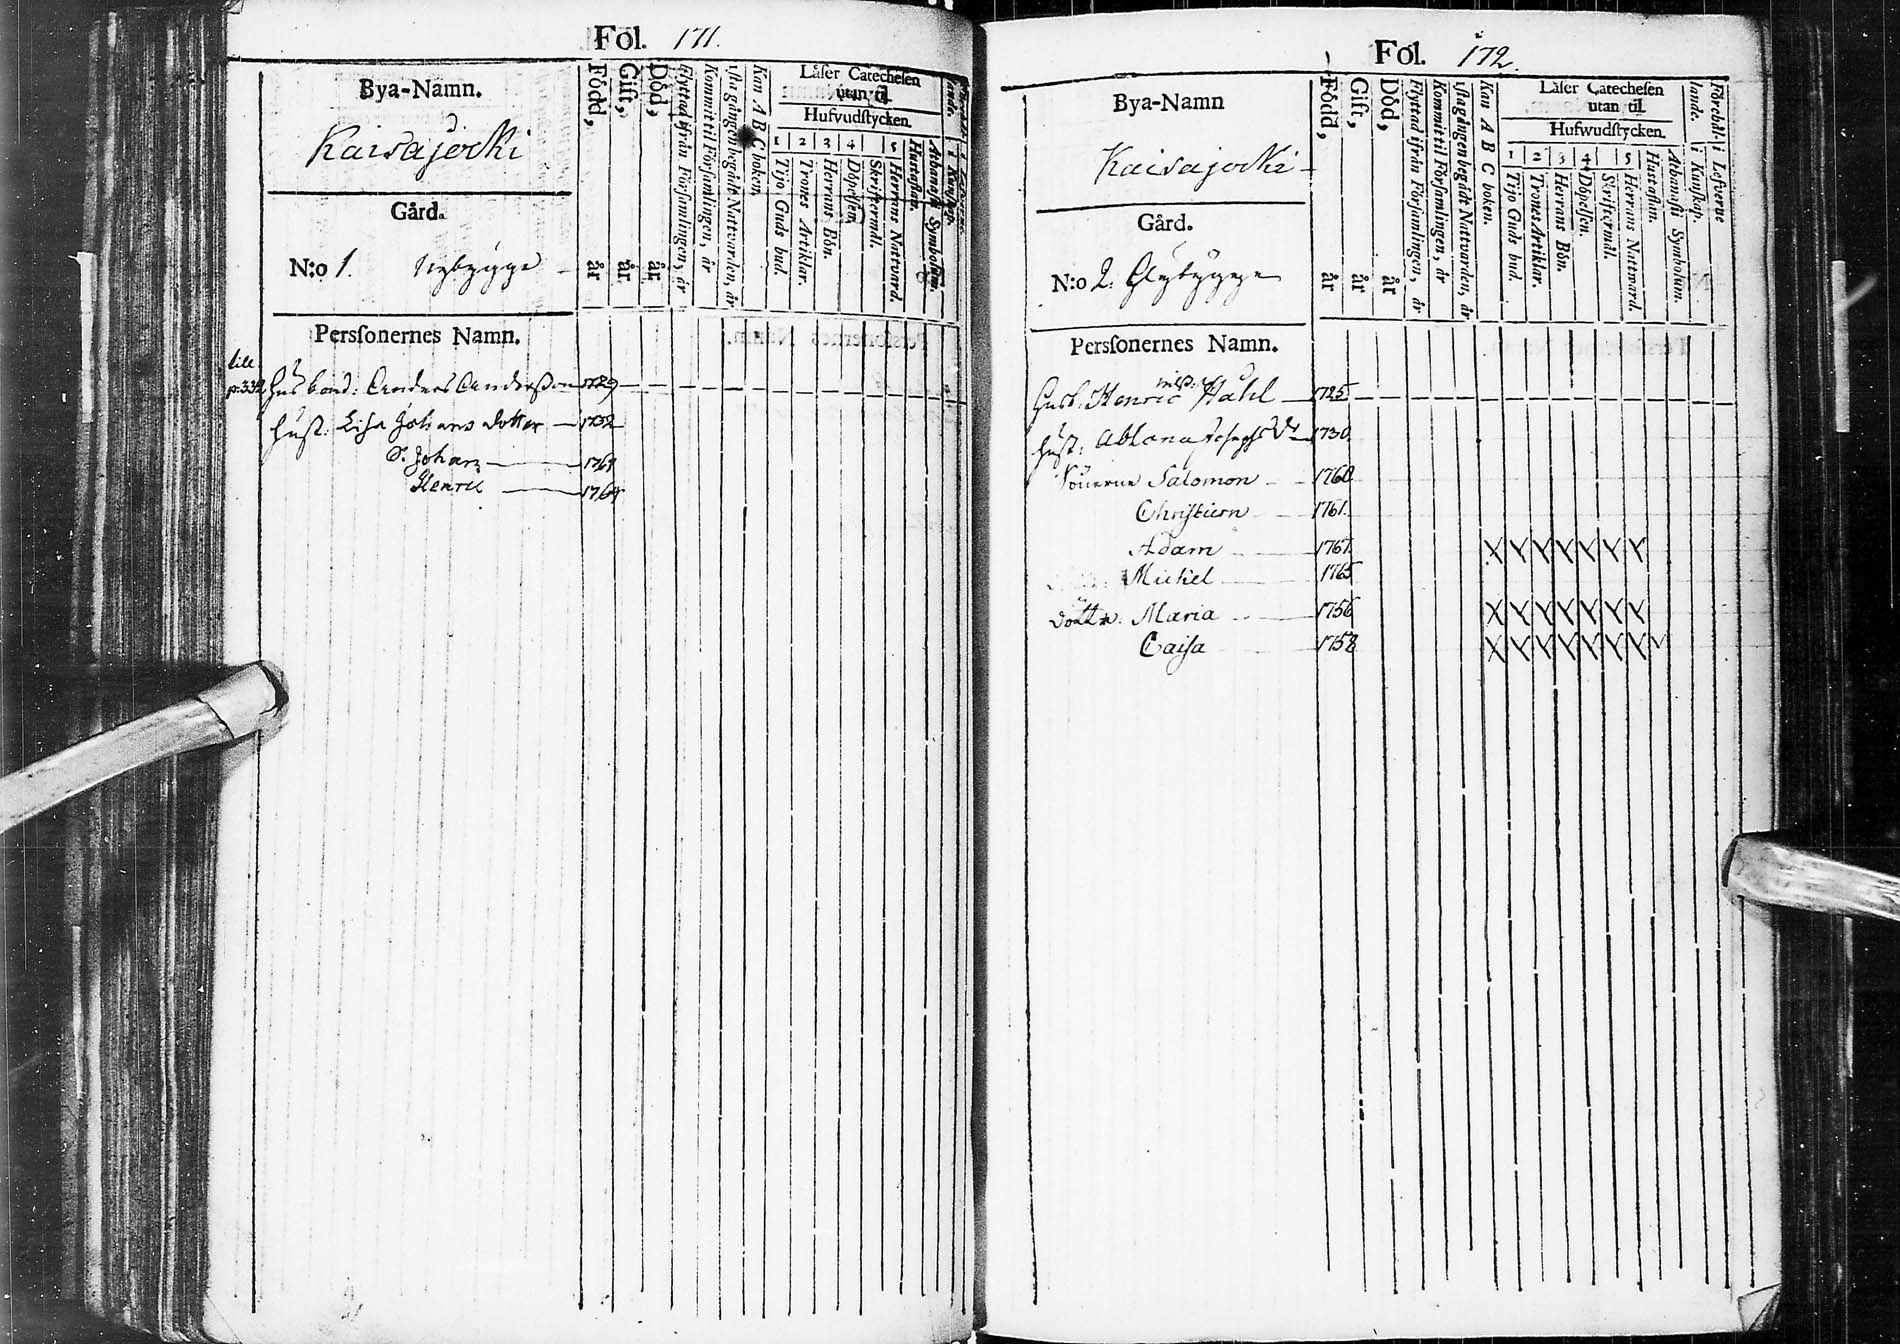 Fol. 171.
Bya-Namn.
Kaisajocki
Gård.
N:o 1. Nybygge
Persſonernes Namn.
Född, år
Gift, år
Död, år
Flyttad ifrån Förſamlingen, år
Kommit til Förſamlingen, år
1ſta gången begådt Nattvarden, år
Kan A B C boken.
Läſer Catecheſen
utan til.
Hufvudſtycken.
1 2 3 4 5
Tijo Guds bud.
Trones Artiklar.
Herrans Bön.
Döpelſen.
Skriftermål.
Herrans Nattvard.
Huſtaflan.
Athanaſii Symbolum.
till
p: 332
Husbond: Anders Anderſson 1729
Huſt: Liſa Johans dotter 1732
S. Johan 1761
Henric 1764
Fol. 172.
Bya-Namn
Kaisajocki
Gård.
N:o 2. Nybygge
Persſonernes Namn.
Född, år
Gift, år
Död, år
Flyttad ifrån Förſamlingen, år
Kommit til Förſamlingen, år
1ſta gången begådt Nattvarden, år
Kan A B C boken.
Läſer Catecheſen
utan til.
Hufwudſtycken.
1 2 3 4 5
Tijo Guds bud.
Trones Artiklar.
Herrans Bön.
Döpelſen.
Skriftermål.
Herrans Nattvard.
Huſtaflan.
Athanaſii Symbolum.
lande. i Kunſkap.
Förehål: i Lefverne
Husb: Henric Stahl 1725
Huſt: Ablona Josephs Dr 1730
Sönerne Salomon 1760
Chriſtiern 1761.
Adam 1767.
Michel 1765
Döttr: Maria 1756
Caiſa 1758